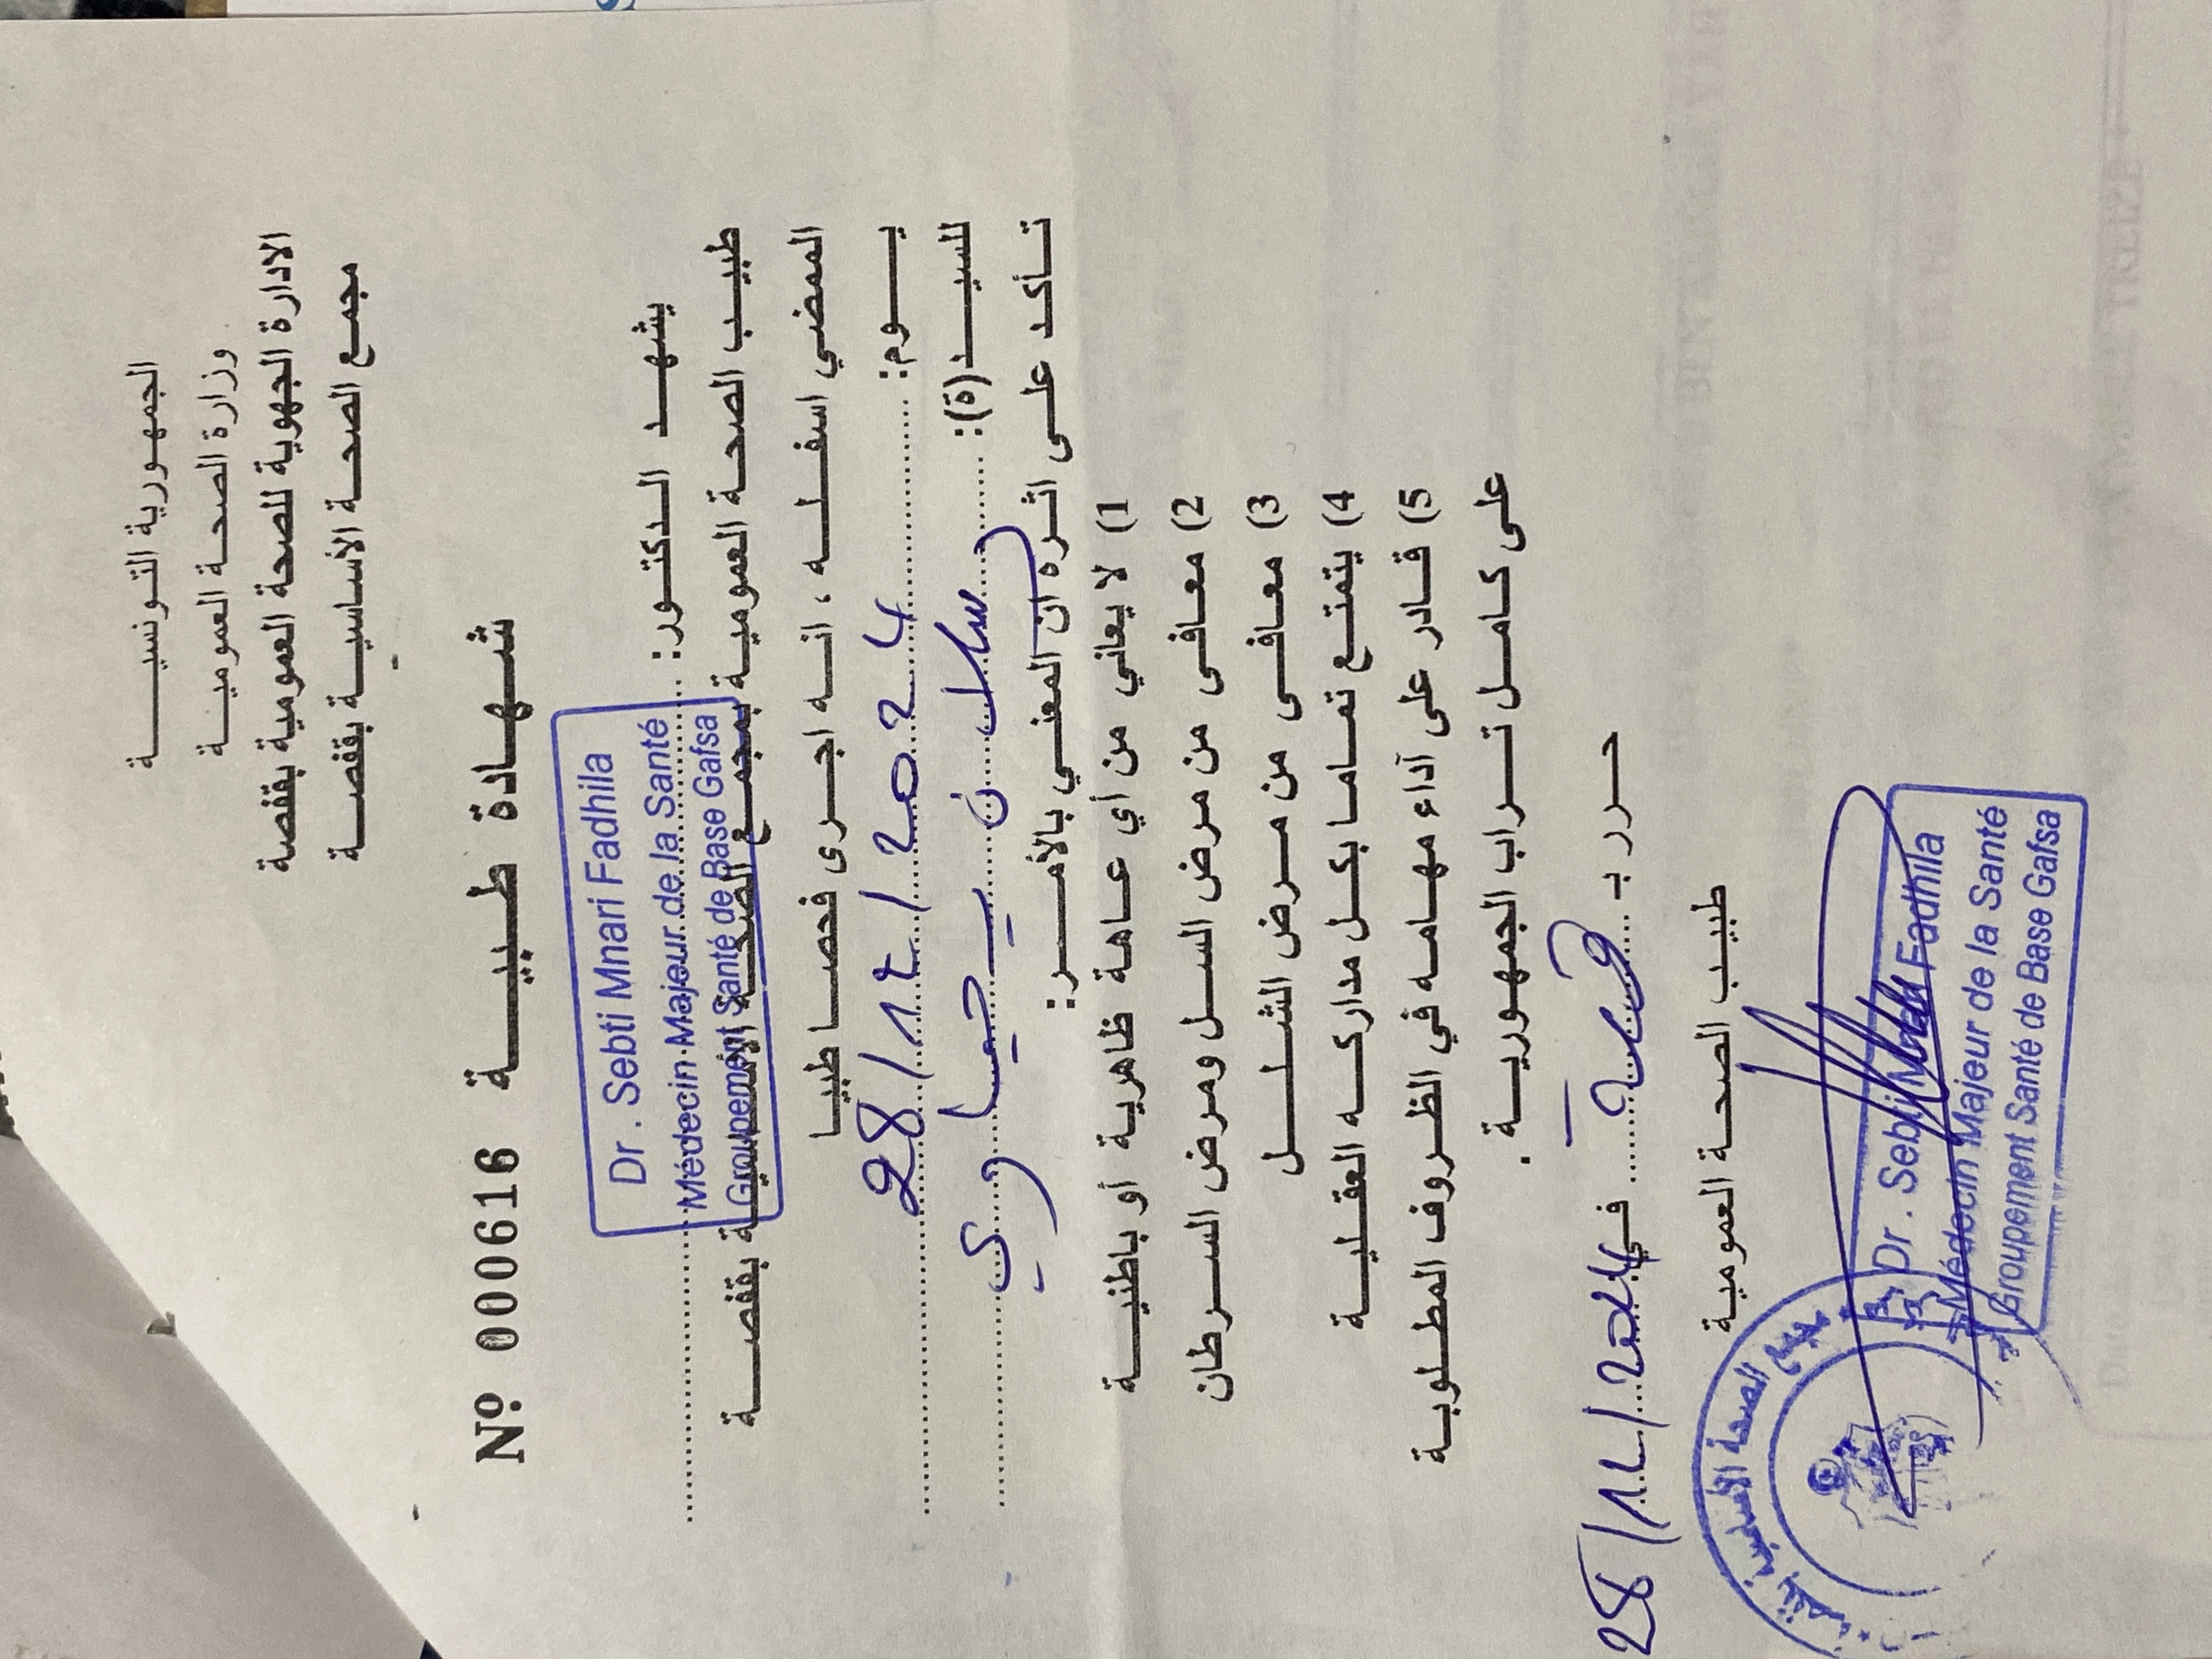 الجمهورية التونسية
وزارة الصحة العمومية
الادارة الجهوية للصحة العمومية بقفصة
مجمع الصحة الأساسية بقفصة
شهادة طبية Nº 000616
يشهد الدكتور:
Dr. Sebti Mnari Fadhila
Médecin Majeur de la Santé
Groupement Santé de Base Gafsa
طبيب الصحة العمومية بمجمع الصحة الأساسية بقفصة
الممضي اسفله ، انه اجرى فحصا طبيا
يوم: 28/12/2024
للسيد(ة):
تأكد على اثره ان المعني بالأمر:
1) لا يعاني من أي عاهة ظاهرية أو باطنية
2) معافى من مرض السل ومرض السرطان
3) معافى من مرض الشلل
4) يتمتع تماما بكل مداركه العقلية
5) قادر على آداء مهامه في الظروف المطلوبة
على كامل تراب الجمهورية .
حرر بـ قفصة في 28/12/2024
طبيب الصحة العمومية
Dr. Sebti Mnari Fadhila
Médecin Majeur de la Santé
Groupement Santé de Base Gafsa
مجمع الصحة الأساسية بقفصة